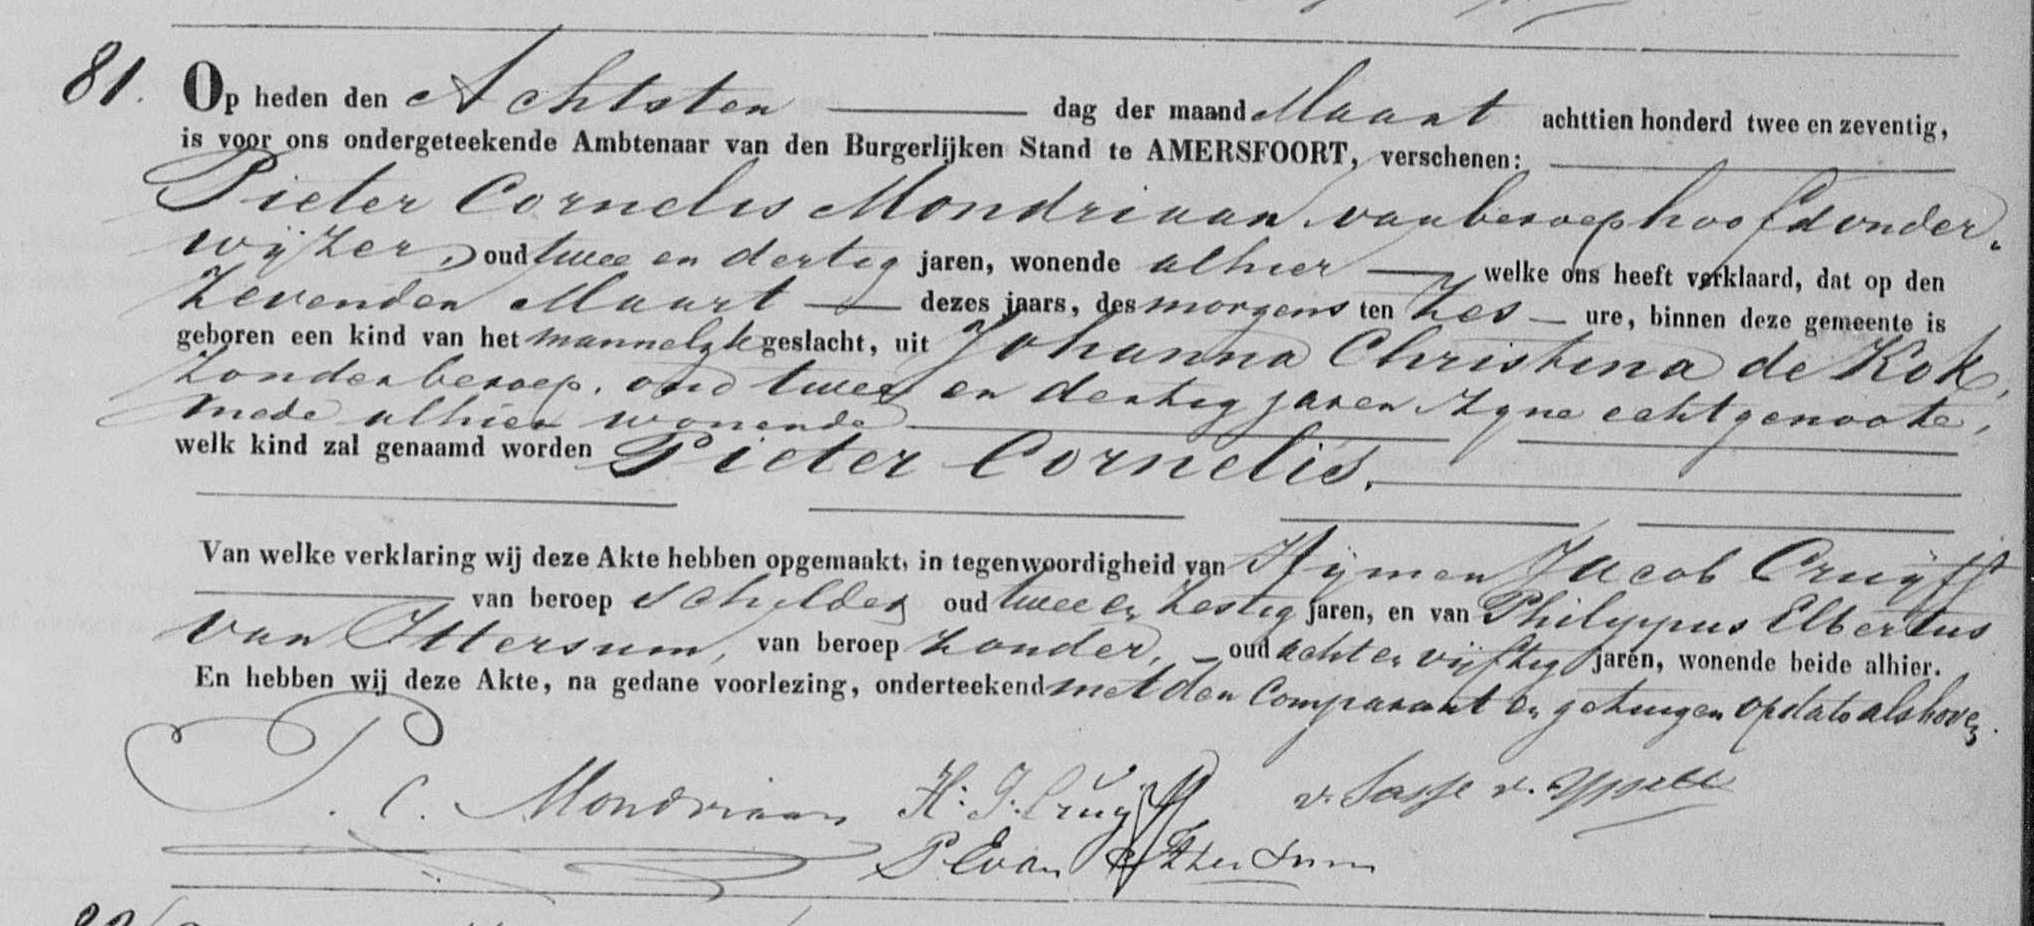 81. Op heden den Achtsten dag der maand Maart achttien honderd twee en zeventig,
is voor ons ondergeteekende Ambtenaar van den Burgerlijken Stand te AMERSFOORT, verschenen:
Pieter Cornelis Mondriaan van beroep hoofdonder-
wijzer, oud twee en dertig jaren, wonende alhier welke ons heeft verklaard, dat op den
Zevenden Maart dezes jaars, des morgens ten Zes ure, binnen deze gemeente is
geboren een kind van het mannelijk geslacht, uit Johanna Christina de Kok,
Zonder beroep, oud twee en dertig jaren Zijne echtgenoote,
mede alhier wonende
welk kind zal genaamd worden Pieter Cornelis.
Van welke verklaring wij deze Akte hebben opgemaakt, in tegenwoordigheid van Hijmen Jacob Cruijff
van beroep schilder oud twee en Zestig jaren, en van Philippus Elbertus
van Ittersum, van beroep Zonder, oud acht en vijftig jaren, wonende beide alhier.
En hebben wij deze Akte, na gedane voorlezing, onderteekend met den Comparant en getuigen op dato als boven.
P. C. Mondriaan H. J. Cruijff v. Sasse v. Ysselt
P E van Ittersum